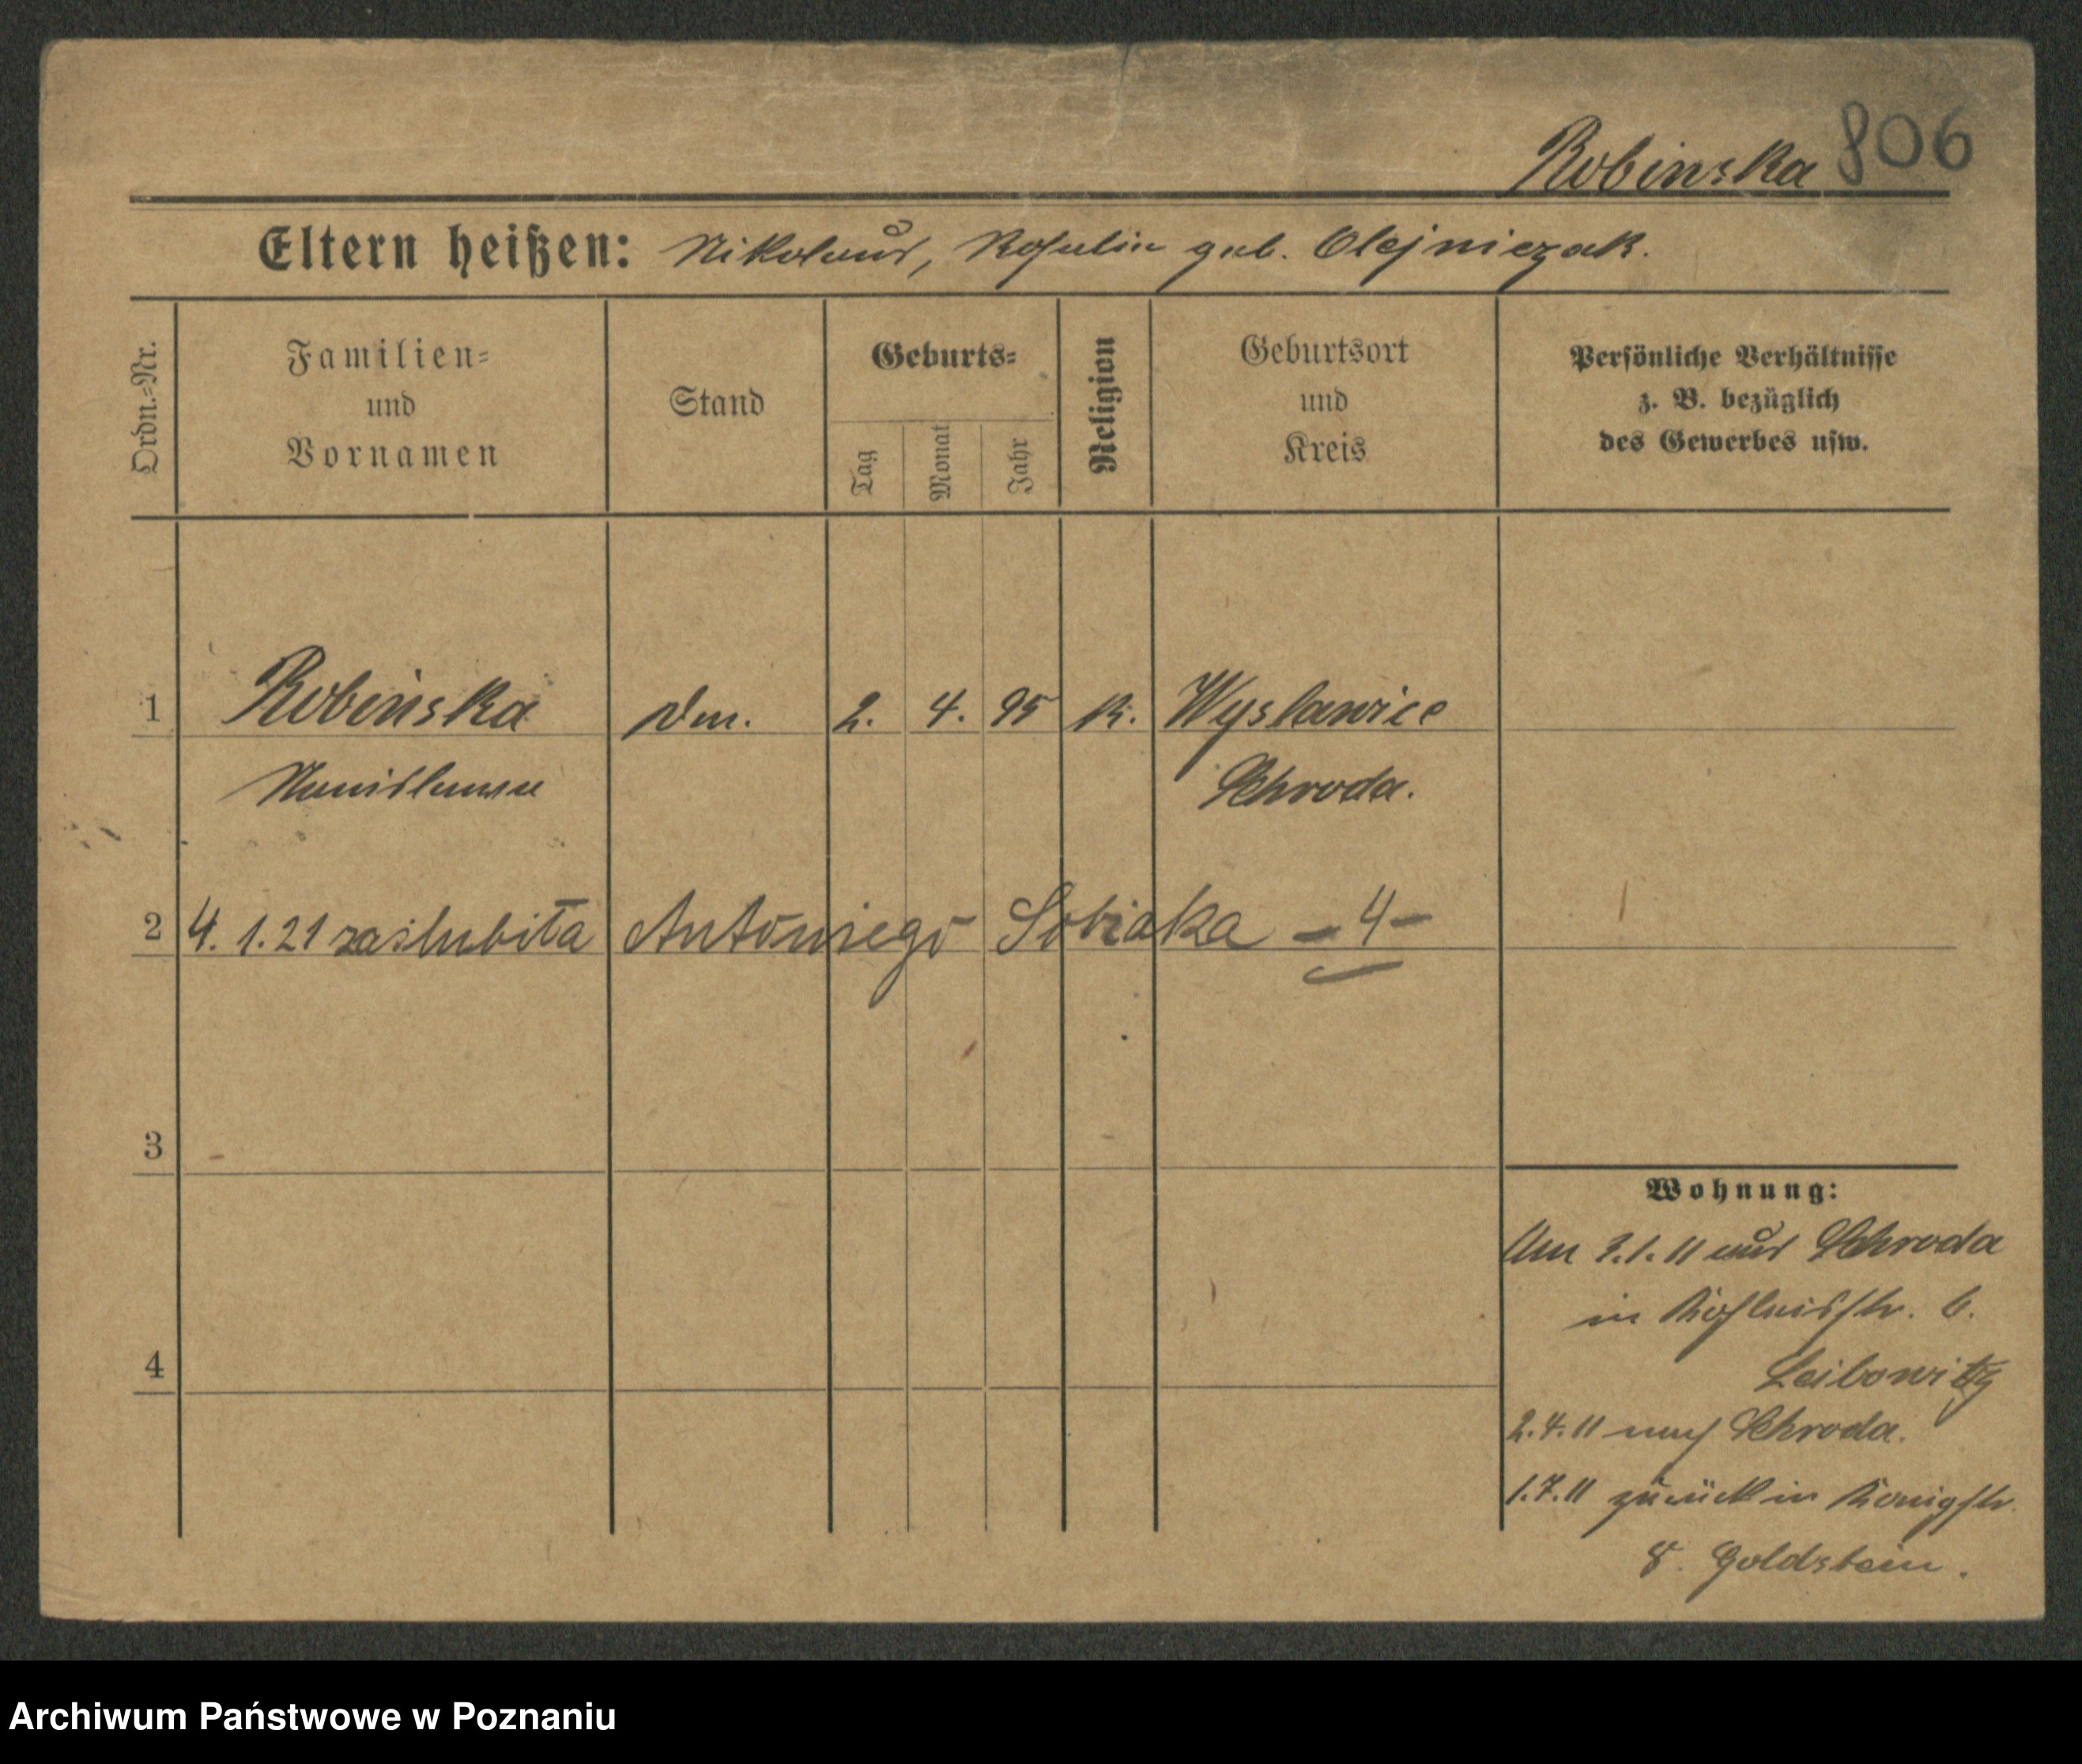 Robinska 806
Eltern heißen: Nikolaus, Rosalie geb. Olejniczak.
Ordn.-Nr.
Familien-
und
Vornamen
Stand
Geburts-
Tag
Monat
Jahr
Religion
Geburtsort
und
Kreis
Persönliche Verhältnisse
z. B. bezüglich
des Gewerbes usw.
1 Robinska 2. 4. 95 K. Wyslawice
Schroda.
2 4. 1. 21 zaślubiła Antoniego Sobiaka – 4 –
3
4
Wohnung:
Am 3.1.11 aus Schroda
in
Leibowitz
2.4.11 nach Schroda.
1.7.11 zurück in Königstr.
8. Goldstein.
Archiwum Państwowe w Poznaniu